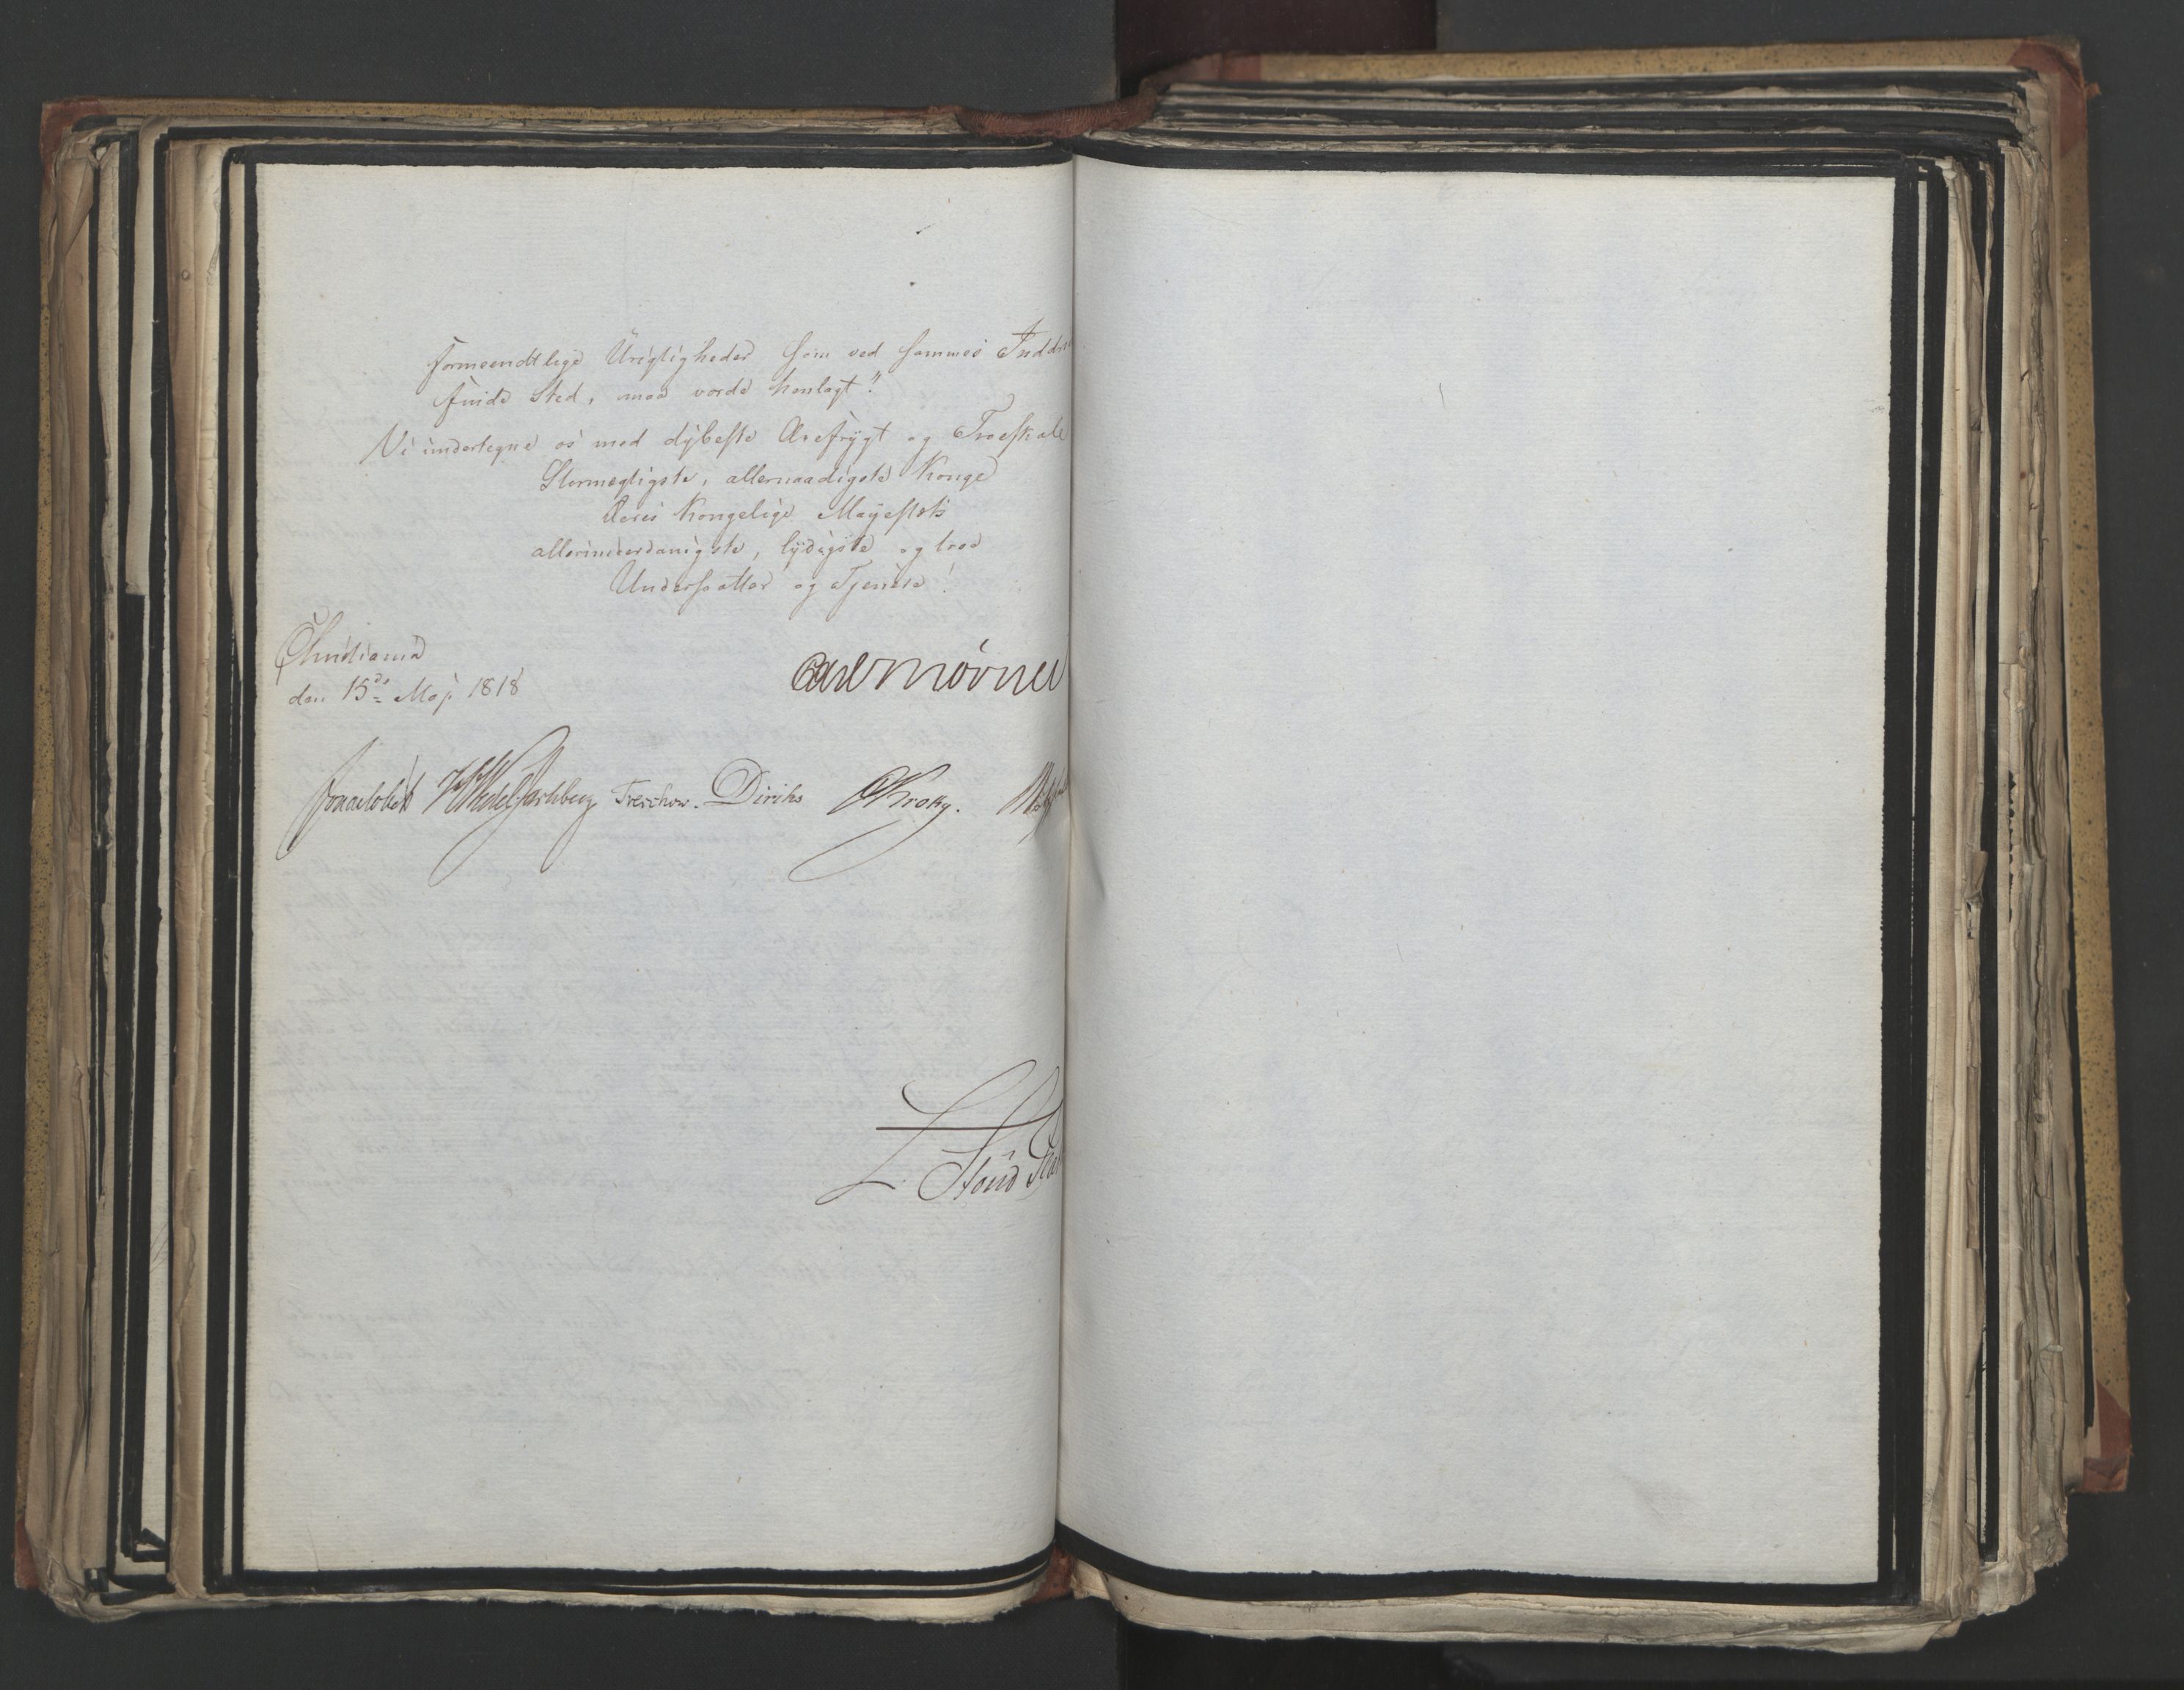 formeendtlige Urigtigheder som ved sammes Inddri
finde Sted, maa vorde henlagt".
Vi undertegne os med dybeste Ærefrygt og Troeskab
Stormægtigste, allernaadigste Konge
Deres Kongelige Majestæts
allerunderdanigste, lydigste og troe
Undersaatter og Tjenere!
Christiania
den 15de Maj 1818
Carl Mörner
Jonas Collett HWedel Jarlsberg Treschow. Diriks CKrohg.
L.